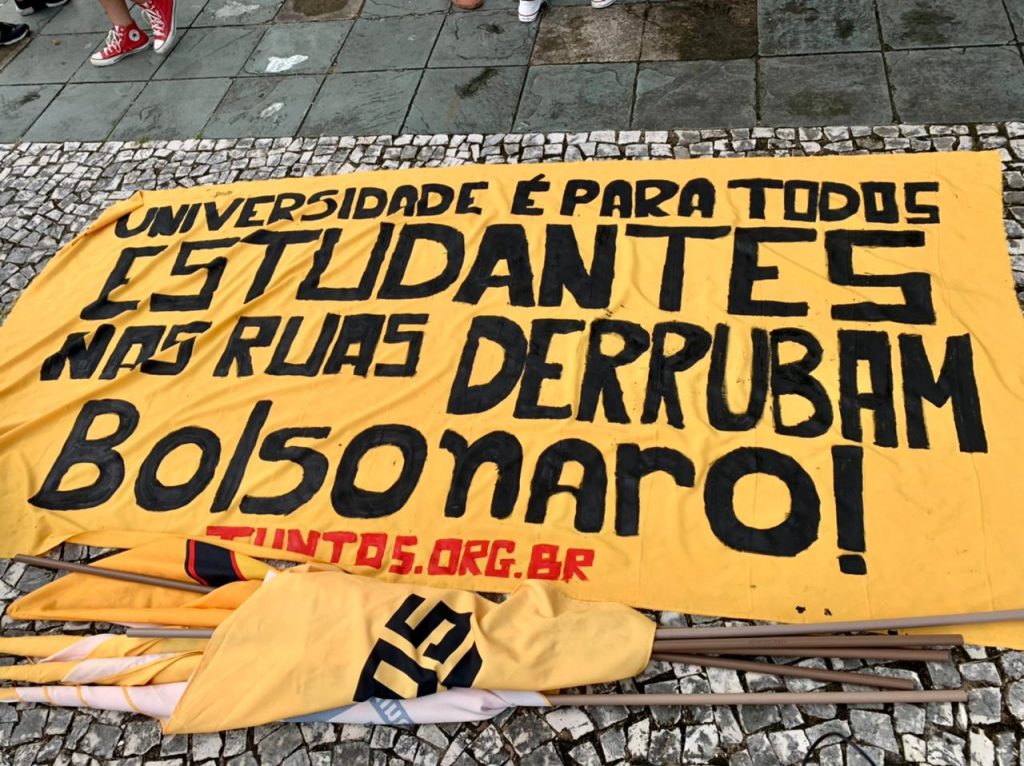 UNIVERSIDADE É PARA TODOS
ESTUDANTES
NAS RUAS DERRUBAM
Bolsonaro!
JUNTOS.ORG.BR
OS